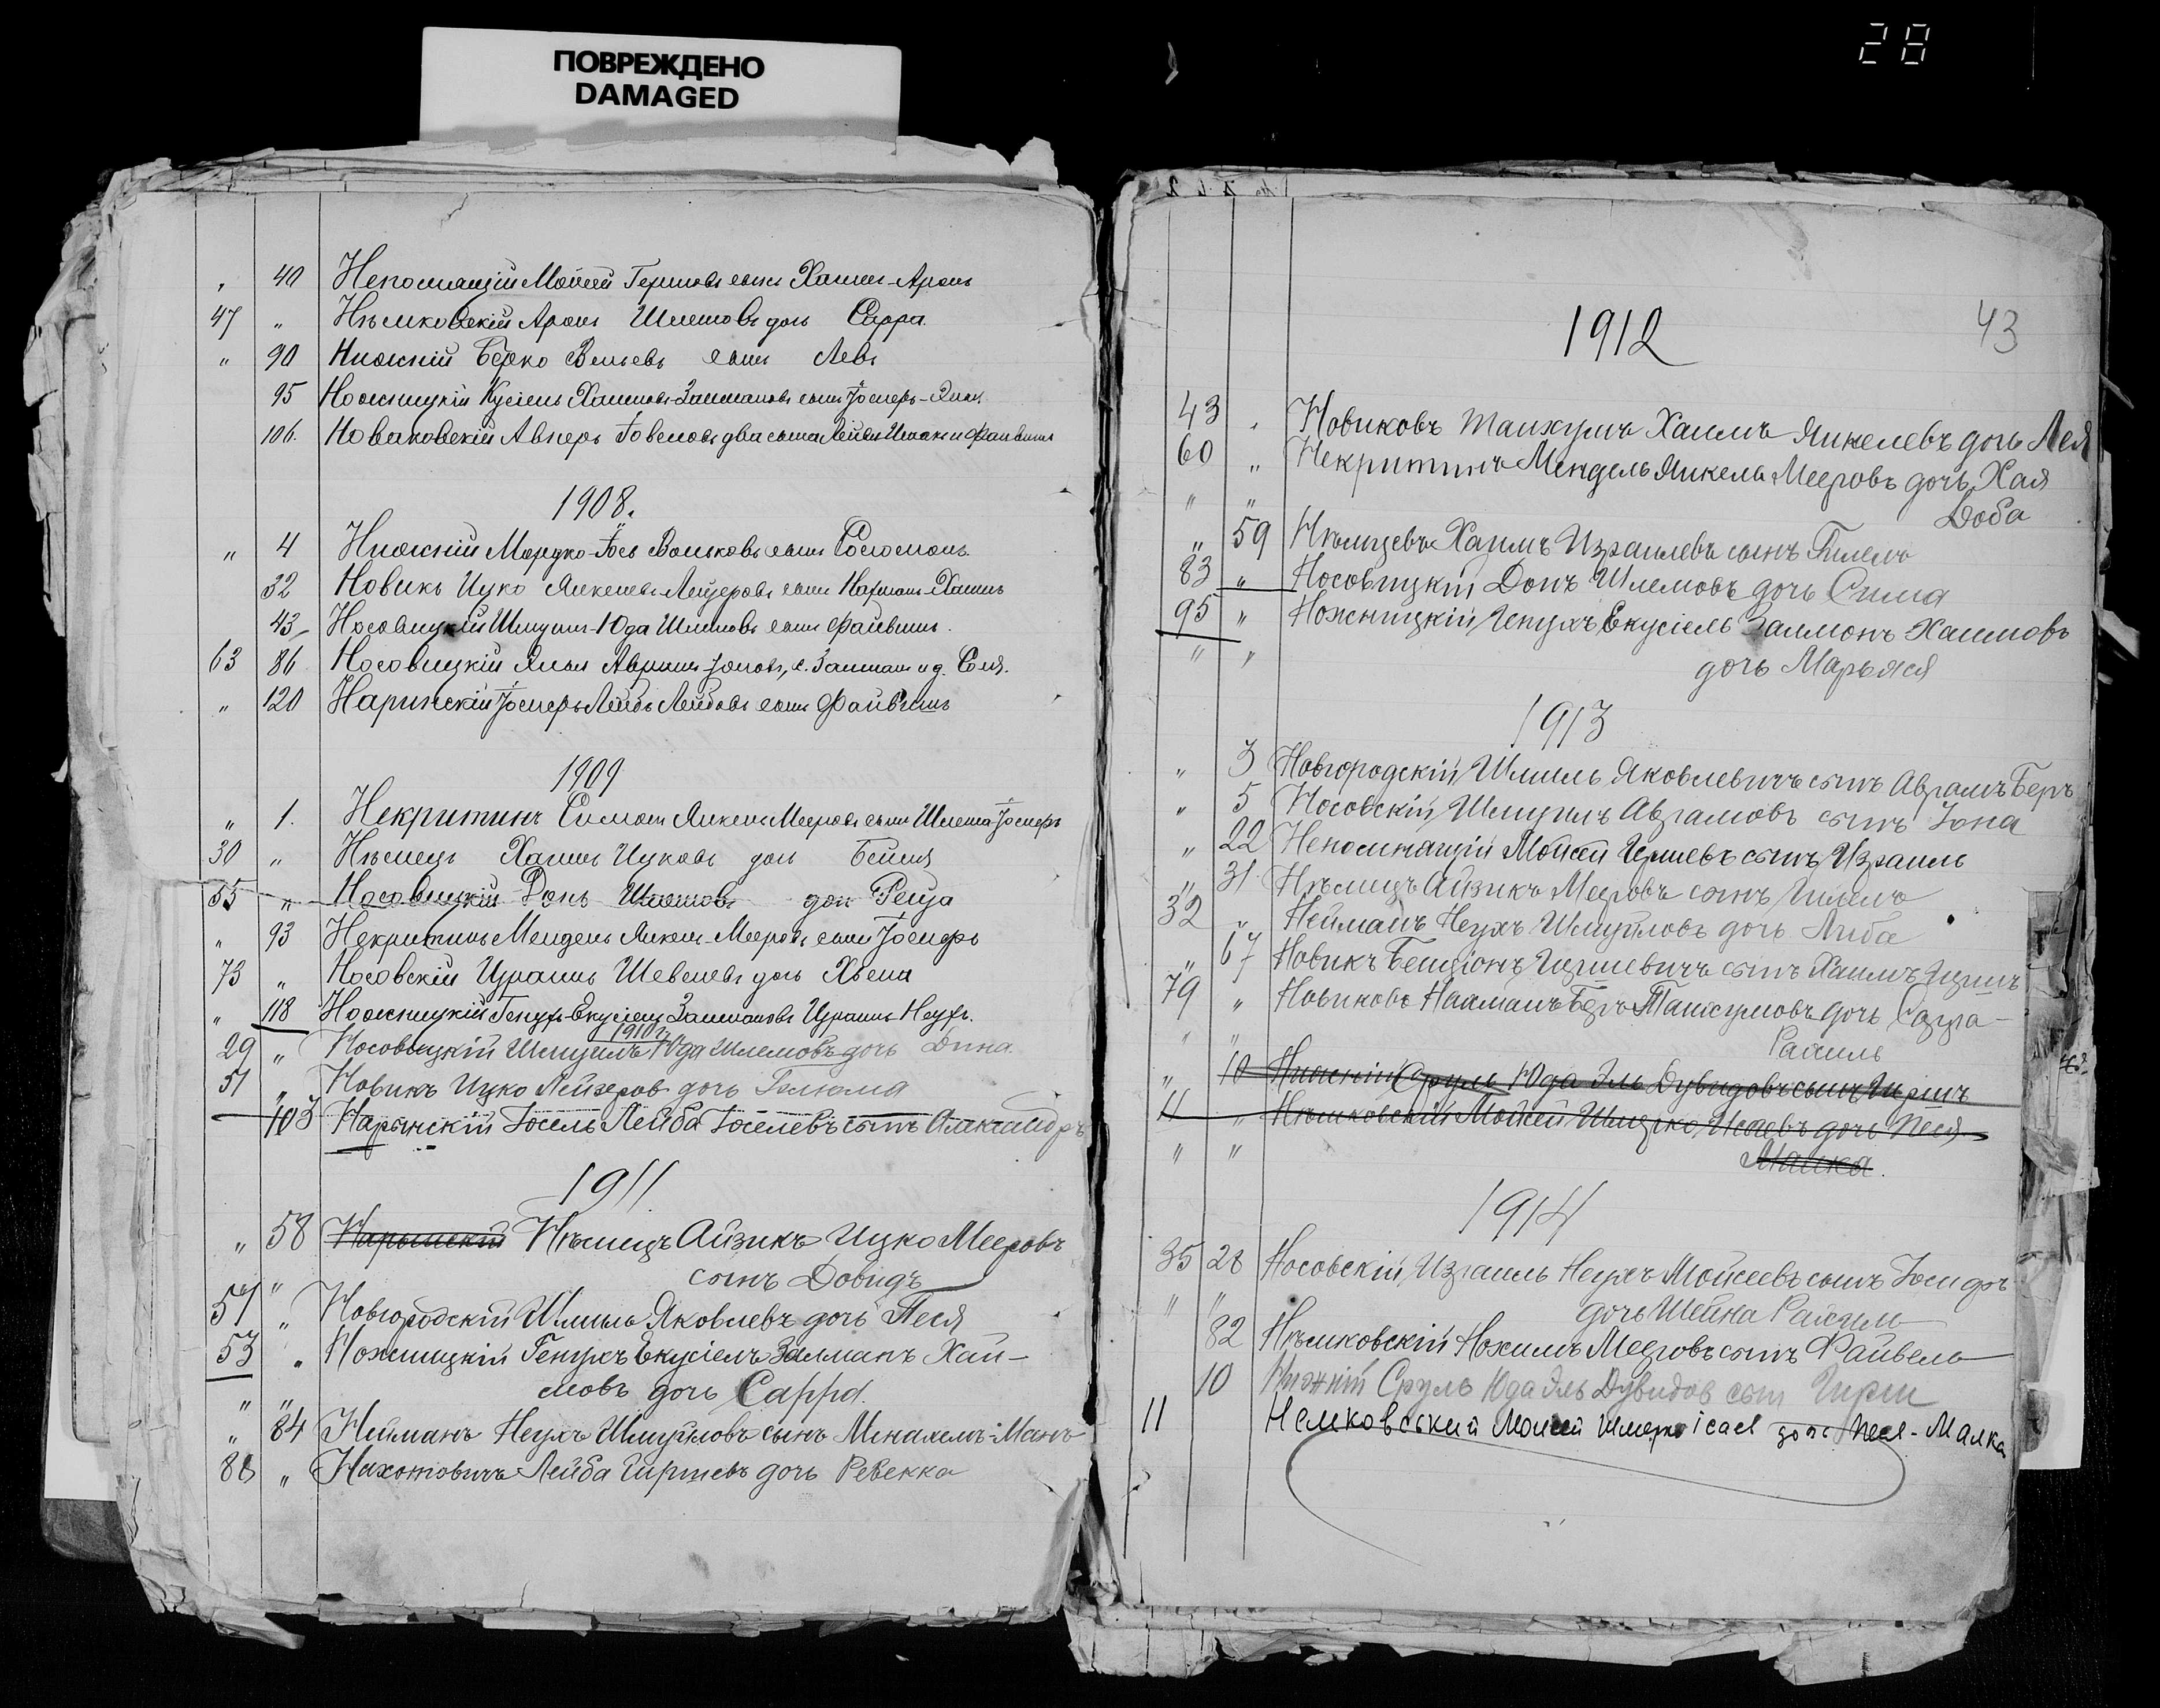 ПОВРЕЖДЕНО
DAMAGED
28
„ 40 Непомнящій Мойсей Гершовъ сынъ Хаимъ-Аронъ
47 „ Нѣмковскій Аронъ Шлемовъ дочь Сарра.
„ 90 Нижній Берко Вольевъ сынъ Левъ
95 Ножницкій Кусіель Хаимовъ-Залмановъ сынъ Іосифъ
106. Новаковскій Авнеръ два сына Лейба Ицхакъ и Файвишъ
1908.
„ 4 Нижній Мордко-Іось Вольковъ сынъ Соломонъ.
32 Новикъ Ицко Янкелевъ Лейзеровъ сынъ Нахманъ-Хаимъ
43 Носовицкій Шмуилъ-Юда Шлемовъ сынъ Файвишъ.
63 86 Носовицкій Авраамъ Іоновъ, с. Залманъ и д. Соня.
„ 120 Наринскій Іосифъ Лейбъ Лейбовъ сынъ Файвишъ
1909
„ 1. Некритинъ Симонъ Янкель Мееровъ сынъ Шлема Іосифъ
30 „ Нѣмецъ Хаимъ Ицковъ дочь Бейля
55 „ Носовицкій Донъ Шлемовъ дочь Рейза
„ 93 Некритинъ Мендель Янкель-Мееровъ сынъ Іосифъ
73 „ Носовскій Израиль Шевелевъ дочь Хьена
„ 118 Ножницкій Генухъ-Екусіель Залмановъ Израиль Неухъ.
1910 г.
29 „ Носовицкій Шмуилъ Юда Шлемовъ дочь Дина.
51 „ Новикъ Ицко Лейзеров дочь
103 Нарынскій Іосель Лейба Іоселевъ сынъ Александръ
1911
„ 58 Нарынскій Нѣмецъ Айзикъ Ицко Мееровъ
„ сынъ Довидъ
57 „ Новгородскій Шмилъ Яковлевъ дочь Песя
53 „ Ножницкій Генухъ Екусіель Залманъ Хаи-
„ „ мовъ дочь Сарра.
„ 84 Нейманъ Неухъ Шмуйловъ сынъ Менахемъ-Манъ
88 „ Нахомовичъ Лейба Гиршевъ дочь Ревекка
43
1912
43 „ Новиковъ Танхумъ Хаимъ Янкелевъ дочь Лея
60 „ Некритинъ Мендель Янкель Мееровъ дочь Хая
„ „ Доба
„ 59 Нѣмцевъ Хаимъ Израилевъ сынъ Гилель
83 „ Носовицкій Донъ Шлемовъ дочь Сима
95 „ Ножницкій Генухъ Екусіель Залмонъ Хаимовъ
„ „ дочь Марьяся
1913
„ 3 Новгородскій Шмилъ Яковлевичъ сынъ Аврамъ Беръ
„ 5 Носовскій Шмуилъ Аврамовъ сынъ Іона
„ 22 Непомнящій Мойсей Гершевъ сынъ Израиль
„ 31 Нѣмецъ Айзикъ Мееровъ сынъ Гилель
32 „ Нейманъ Неухъ Шмуйловъ дочь Либа
„ 67 Новикъ Бенціонъ Гиршевичъ сынъ Хаимъ Гиршъ
79 „ Новиковъ Нахманъ Беръ Танхумовъ дочь Сарра-
„ „ Рахиль
„ 10 Нижній Сруль Юда Эль Дувидовъ сынъ Гиршъ
11 „ Нѣмковскій Мойсей Шмерко Исаевъ дочь Песя
„ „ Малка.
1914
35 28 Носовскій Израиль Неухъ Мойсеевъ сынъ Іосифъ
„ „ дочь Шейна Рахиль
82 Нѣмковскій Нохимъ Мееровъ сынъ Файвель
10 Нижній Сруль Юда Эль Дувидов сын Гирш
11 Немковський Мойсей Шмерко Ісаев дочь Песя-Малка